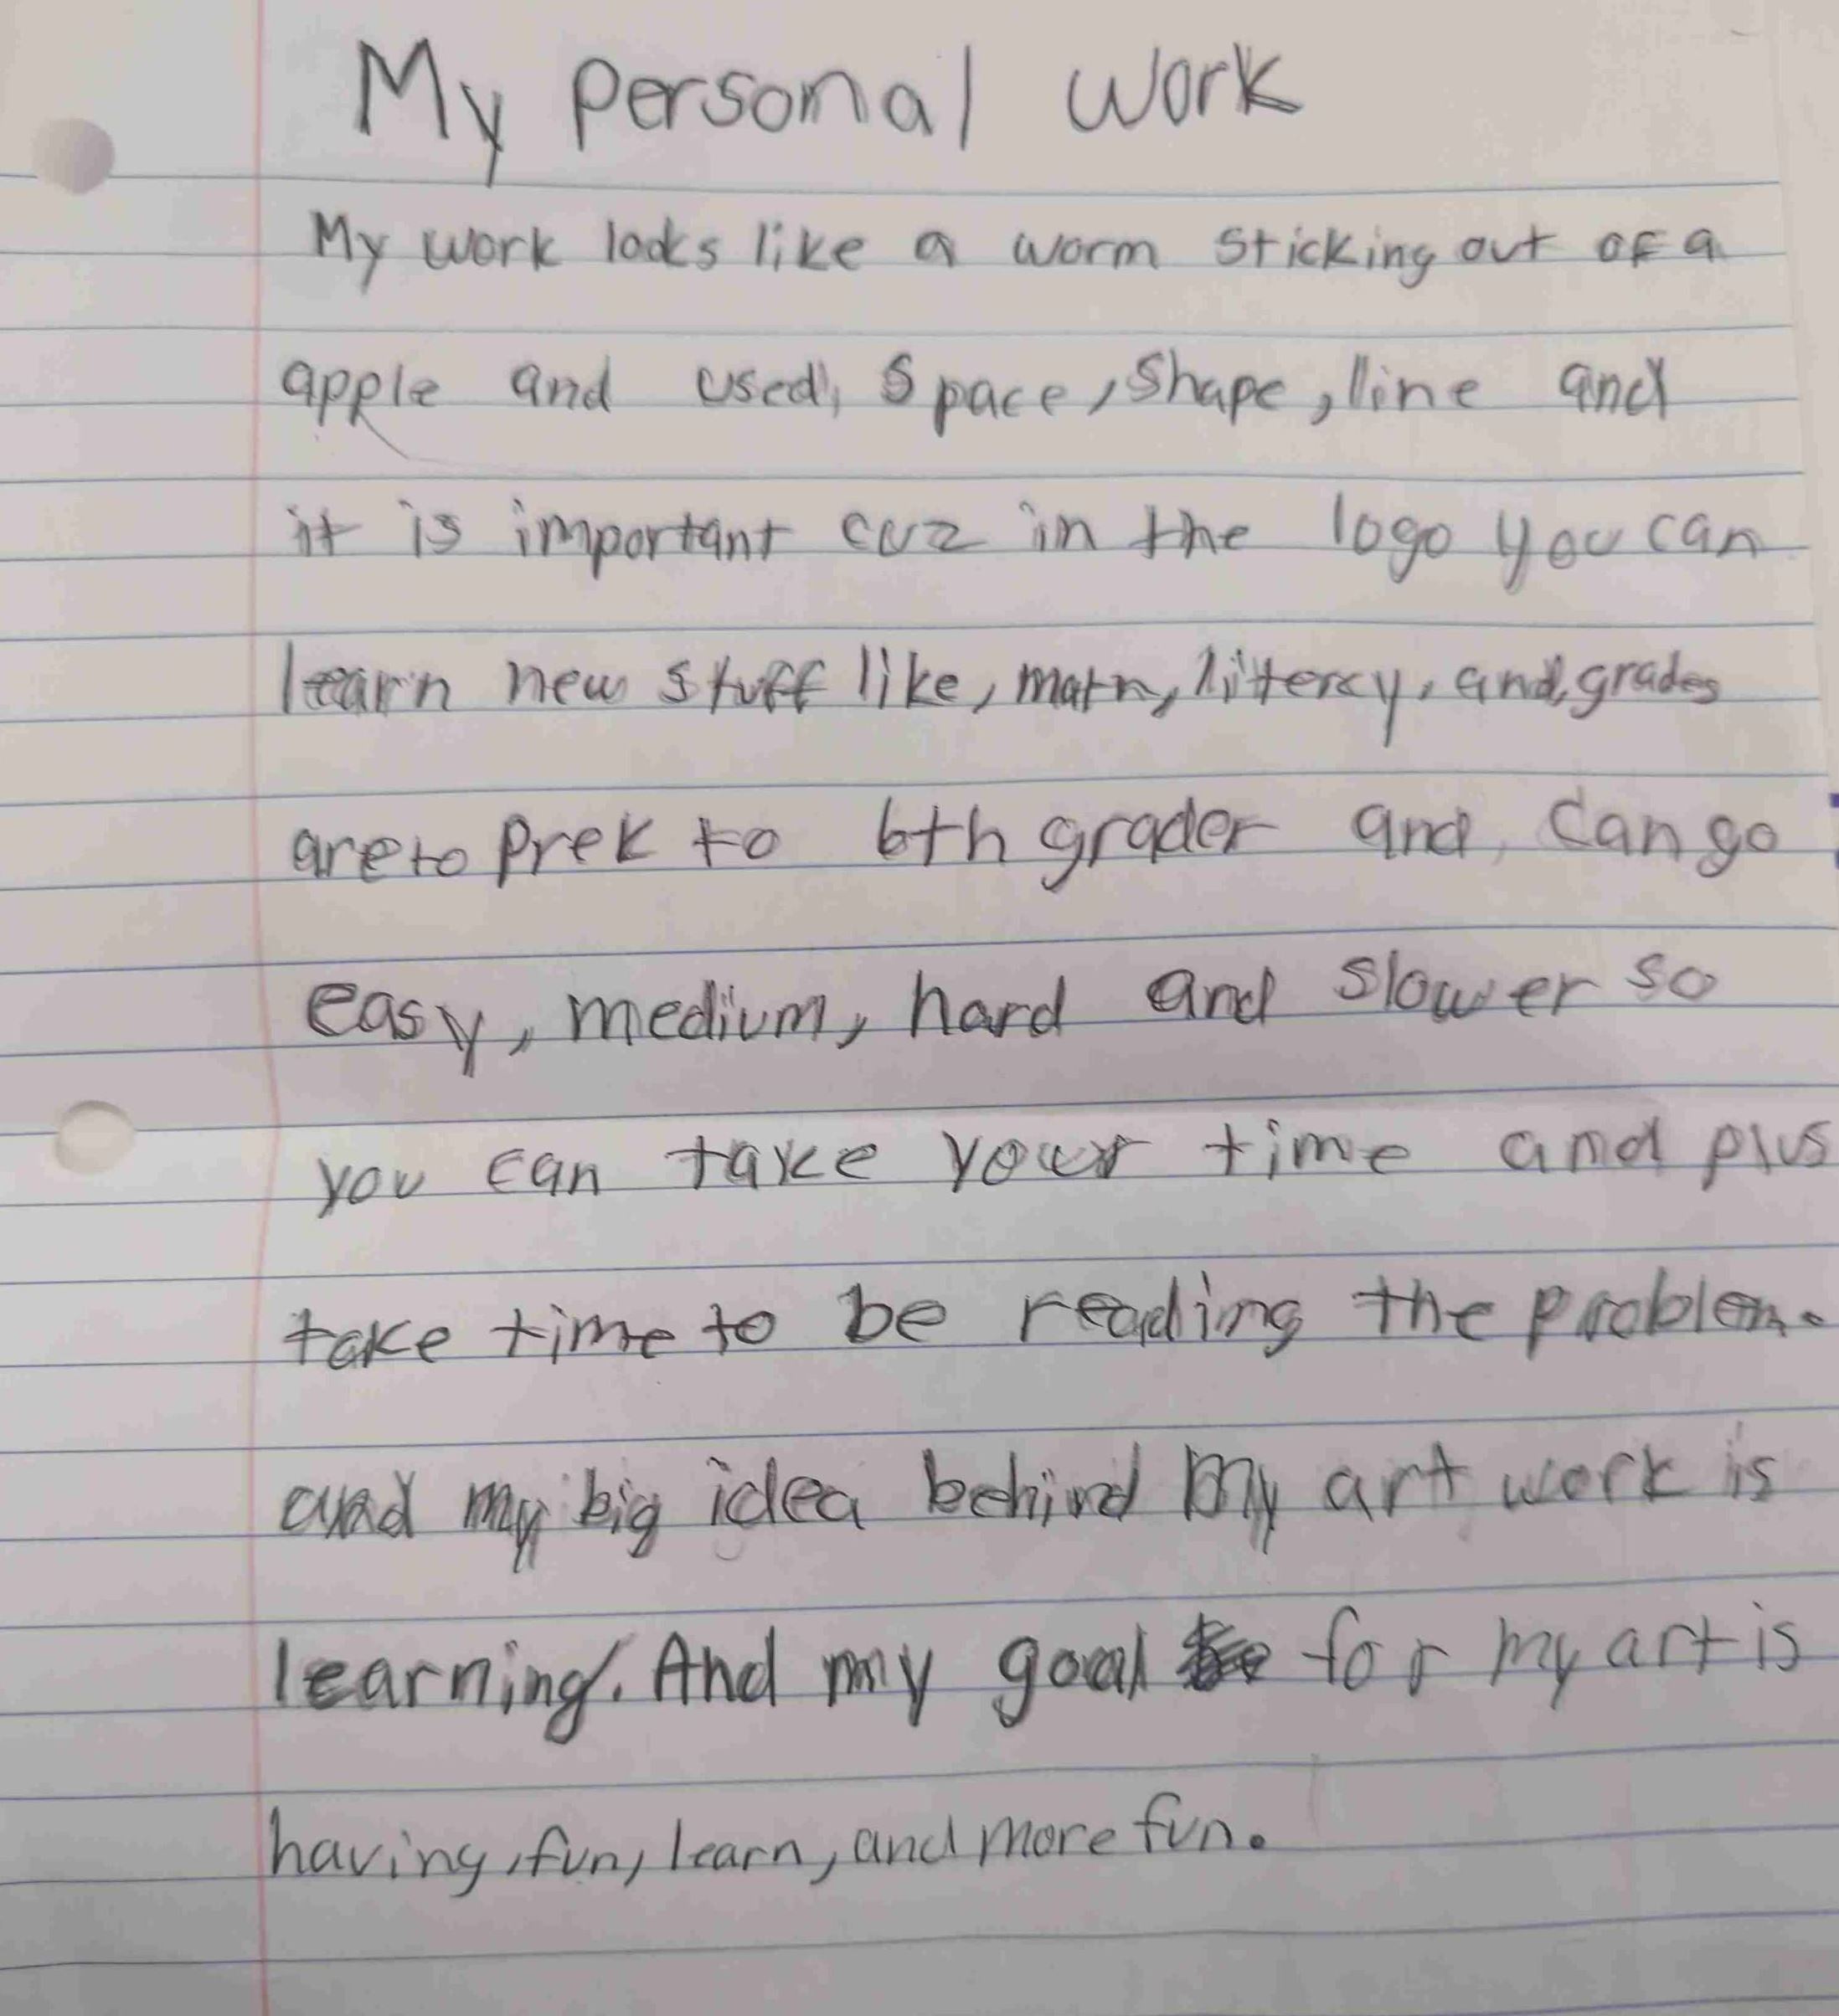 My personal work
My work looks like a worm sticking out of a
apple and used, space, shape, line and
it is important cuz in the logo you can
learn new stuff like, math, littercy, and, grades
are to prek to 6th grader and, can go
easy, medium, hard and slower so
you can take your time and plus
take time to be reading the problem.
and my big idea behind my art work is
learning. And my goal for my art is
having, fun, learn, and more fun.